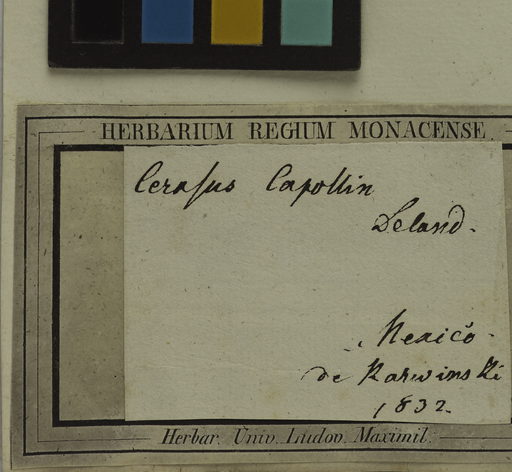 HERBARIUM REGIUM MONACENSE
Cerasus Capollin
Deland.
Mexico.
de Karwinski
1832.
Herbar. Univ. Ludov. Maximil.